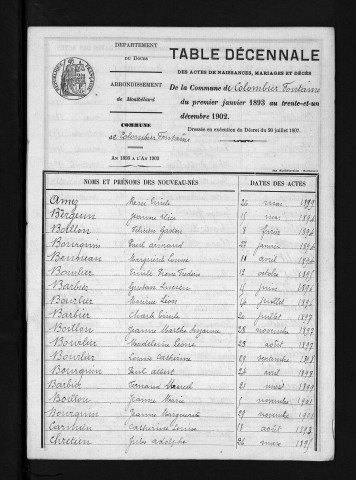 DÉPARTEMENT
DU DOUBS
ARRONDISSEMENT
de Montbéliard
COMMUNE
de Colombier Fontaine
An 1893 à l'An 1903
TABLE DÉCENNALE
DES ACTES DE NAISSANCES, MARIAGES ET DÉCÈS
De la Commune de Colombier Fontaine
du premier janvier 1893 au trente-et-un
décembre 1902.
Dressée en exécution du Décret du 20 juillet 1807.
NOMS ET PRÉNOMS DES NOUVEAU-NÉS DATES DES ACTES
René Emile 26 mai
Jeanne 15 mai
Boillon 8 février
Bourquin Paul armand 27 janvier
Marguerite Louise 10 avril
Bourlier Emile Pierre 12 octobre
Barbier Gustave Lucien 15 juin
Maurice Léon 24 juillet
Barbier Charles Emile 20 juillet 1897
Boillon Jeanne Marthe Suzanne 28 novembre 1897
Bourlier Madeleine 23 août 1897
Bourlier Louise Catherine 29 septembre
Bourquin Paul albert 24 avril
Barbier Fernand Marcel 21 avril 1899
Boillon Jeanne Marie 5 novembre 1901
Bourquin Jeanne Marguerite 29 novembre
Catherine Louise 18 août 1893
Chretien Jules adolphe 26 mars